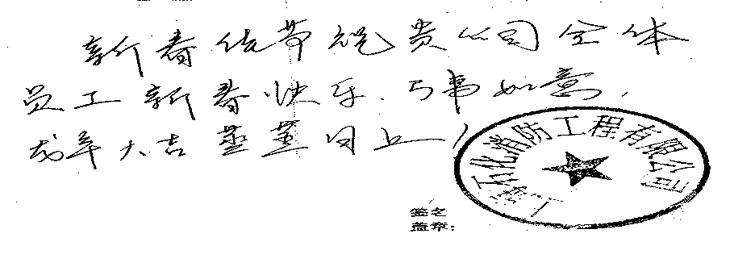 新春佳节祝贵公司全体
员工新春快乐.万事如意,
戊年大吉蒸蒸日上!
上海石化消防工程有限公司
签名
盖章: